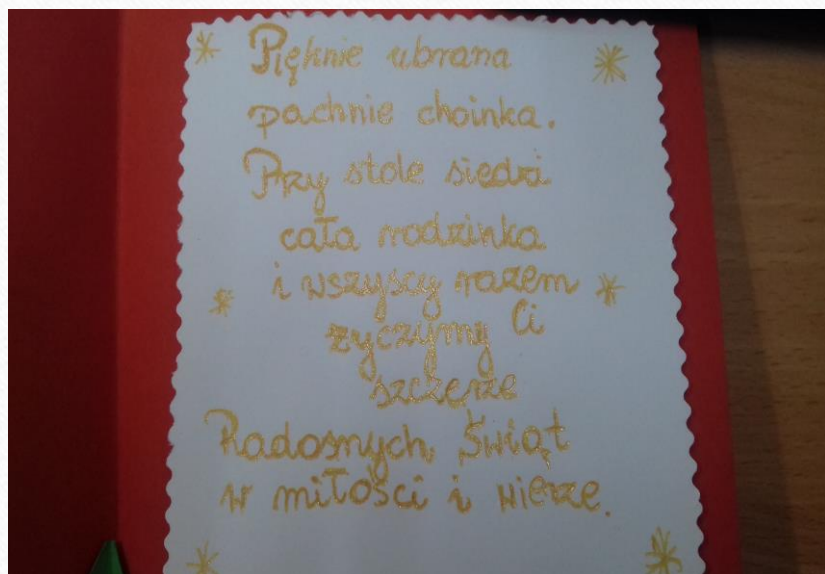 Pięknie ubrana
pachnie choinka.
Przy stole siedzi
cała rodzinka
i wszyscy razem
życzymy Ci
szczerze
Radosnych Świąt
w miłości i wierze.